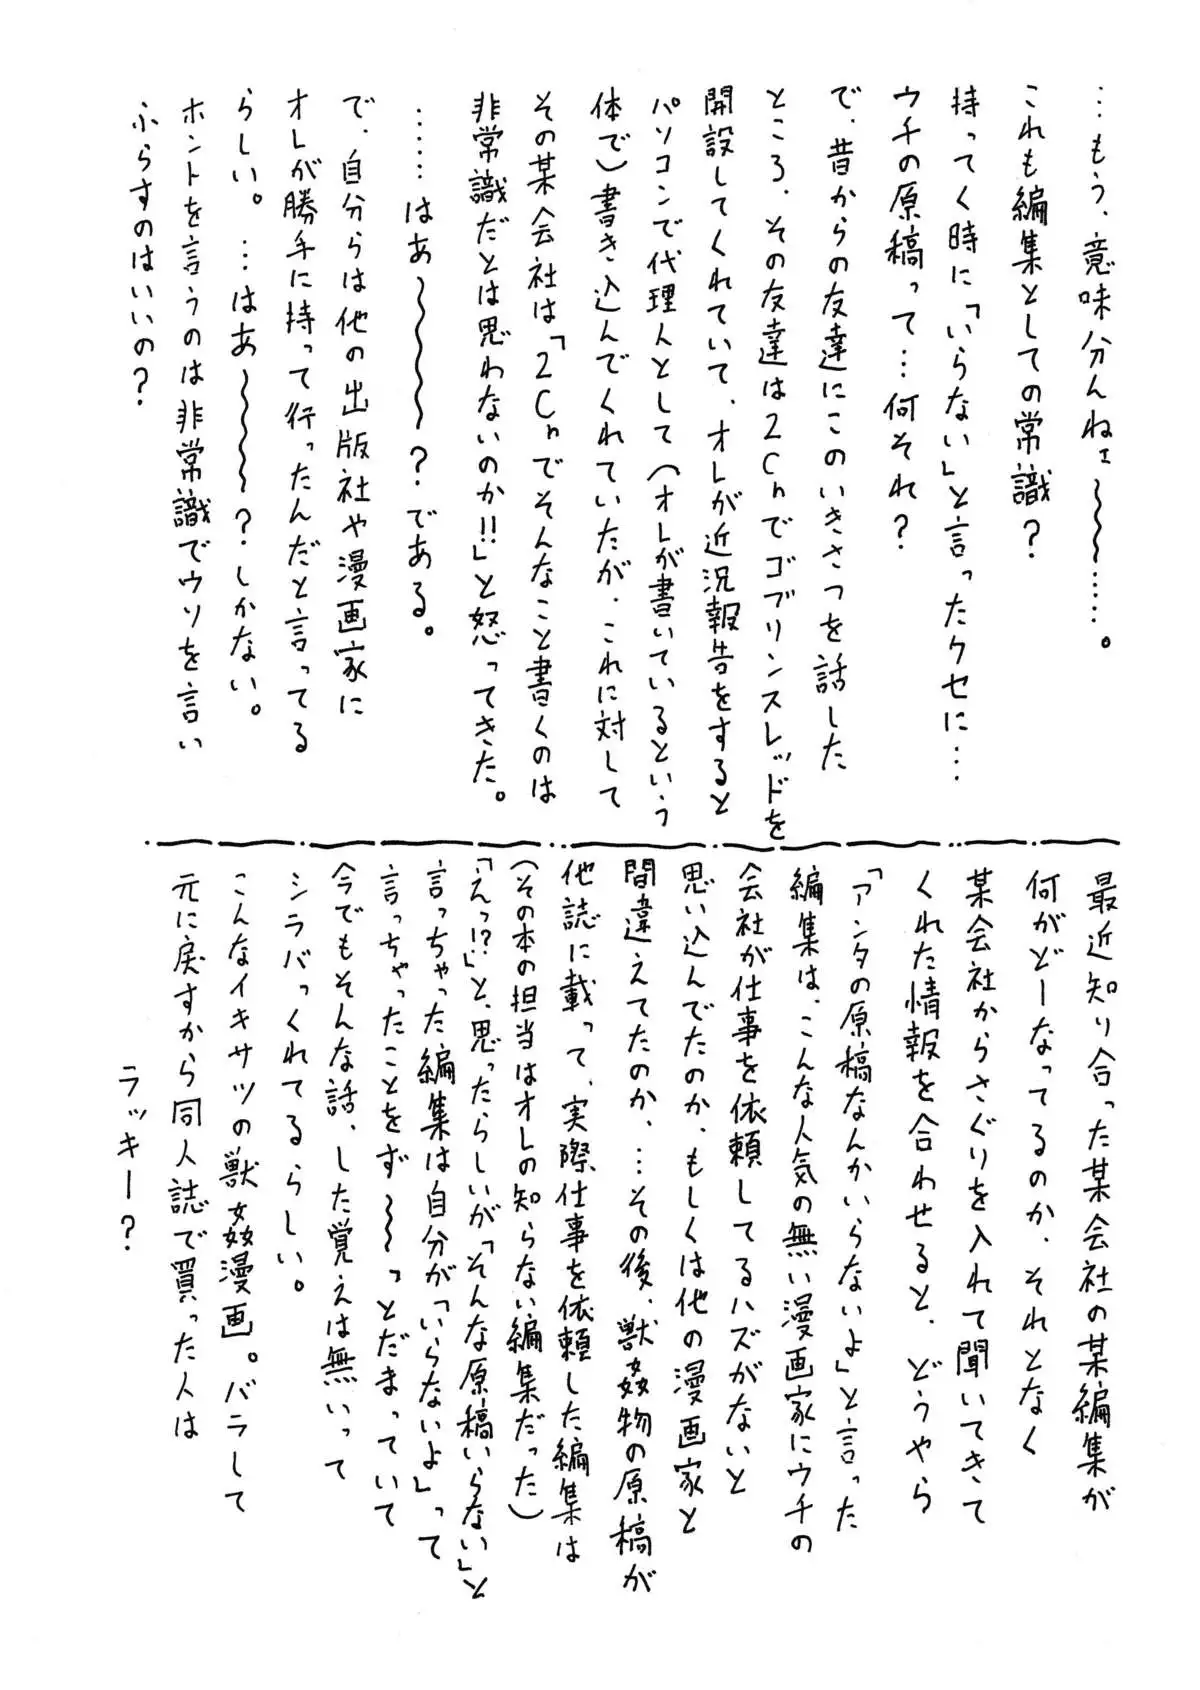 …もう、意味分んねェ〜〜〜……。
これも編集としての常識？
持ってく時に「いらない」と言ったクセに…
ウチの原稿って…何それ？
で、昔からの友達にこのいきさつを話した
ところ、その友達は2Chでゴブリンスレッドを
開設してくれていて、オレが近況報告をすると
パソコンで代理人として（オレが書いているという
体で）書き込んでくれていたが、これに対して
その某会社は「2Chでそんなこと書くのは
非常識だとは思わないのか!!」と怒ってきた。
……はあ〜〜〜〜？である。
で、自分らは他の出版社や漫画家に
オレが勝手に持って行ったんだと言ってる
らしい。…はあ〜〜〜〜？しかない。
ホントを言うのは非常識でウソを言い
ふらすのはいいの？
最近知り合った某会社の某編集が
何がどーなってるのか、それとなく
某会社からさぐりを入れて聞いてきて
くれた情報を合わせると、どうやら
「アンタの原稿なんかいらないよ」と言った
編集は、こんな人気の無い漫画家にウチの
会社が仕事を依頼してるハズがないと
思い込んでたのか、もしくは他の漫画家と
間違えてたのか、…その後、獣姦物の原稿が
他誌に載って、実際仕事を依頼した編集は
（その本の担当はオレの知らない編集だった）
「えっ!?」と、思ったらしいが「そんな原稿いらない」と
言っちゃった編集は自分が「いらないよ」って
言っちゃったことをず〜〜っとだまっていて
今でもそんな話、した覚えは無いって
シラバっくれてるらしい。
こんなイキサツの獣姦漫画。バラして
元に戻すから同人誌で買った人は
ラッキー？